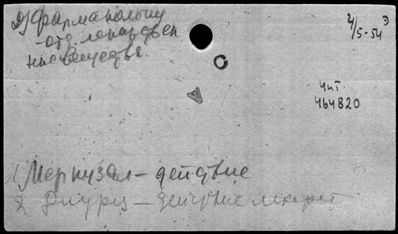 2) Фармакологи
- отд. лекарствен
ные вещества.
4/5-54 Э
Чит
464820
1 Меркузал - действие
2 Диурез - действие лекарст